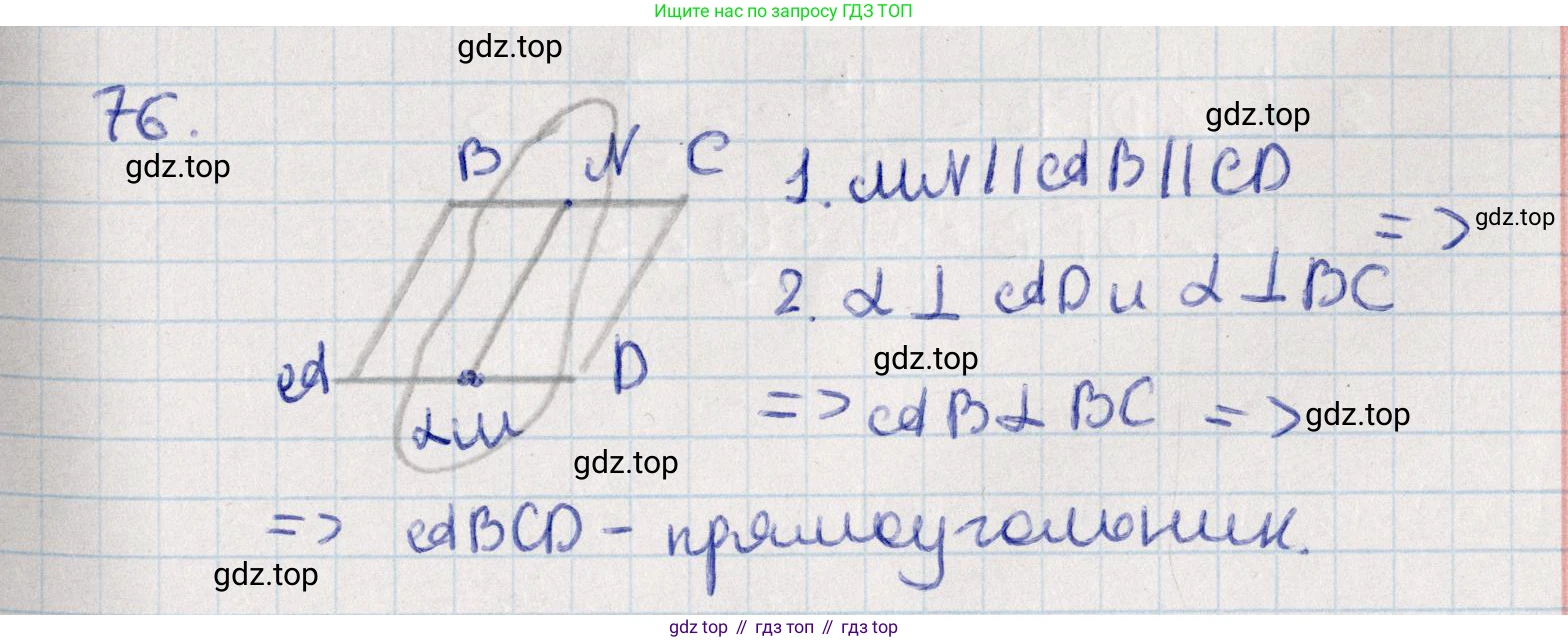 Ищите нас по запросу ГДЗ ТОП
gdz.top
76.
gdz.top
gdz.top
B N C
1. MN || AB || CD
=> gdz.top
2. α ⊥ AD и α ⊥ BC
gdz.top
A D
=> AB ⊥ BC => gdz.top
α M
gdz.top
=> ABCD - прямоугольник.
gdz.top
gdz top // гдз топ // гдз top